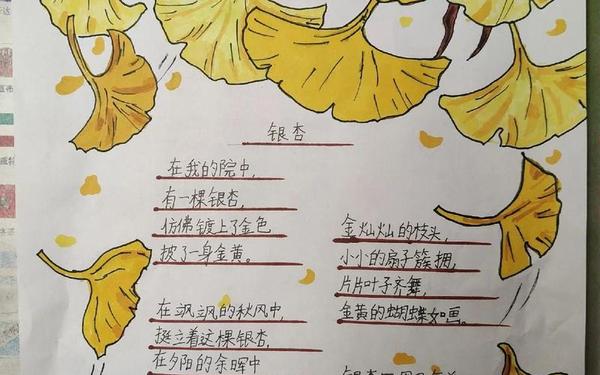 银杏
在我的院中,
有一棵银杏,
仿佛镀上了金色
披了一身金黄。
在飒飒的秋风中,
挺立着这棵银杏,
在夕阳的余晖中
金灿灿的枝头,
小小的扇子簇拥,
片片叶子齐舞,
金黄的蝴蝶如画。